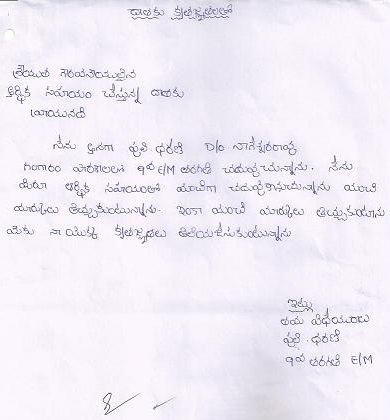 దాతకు కృతజ్ఞతలతో
శ్రీయుత గౌరవనీయులైన
ఆర్థిక సహాయం చేస్తున్న దాతకు
వ్రాయునది
నేను అనగా పులి ధరణి D/O నాగేశ్వరరావు
గంగారం పాఠశాలలో 9వ E/M తరగతి చదువుచున్నాను. నేను
మీరు ఆర్థిక సహాయంతో మంచిగా చదువుకొనుచున్నాను మంచి
మార్కులు తెచ్చుకుంటున్నాను. ఇంకా మంచి మార్కులు తెచ్చుకుంటాను
మీకు నా యొక్క కృతజ్ఞతలు తెలియజేసుకుంటున్నాను
ఇట్లు
తమ విధేయులు
పులి. ధరణి
9వ తరగతి E/M